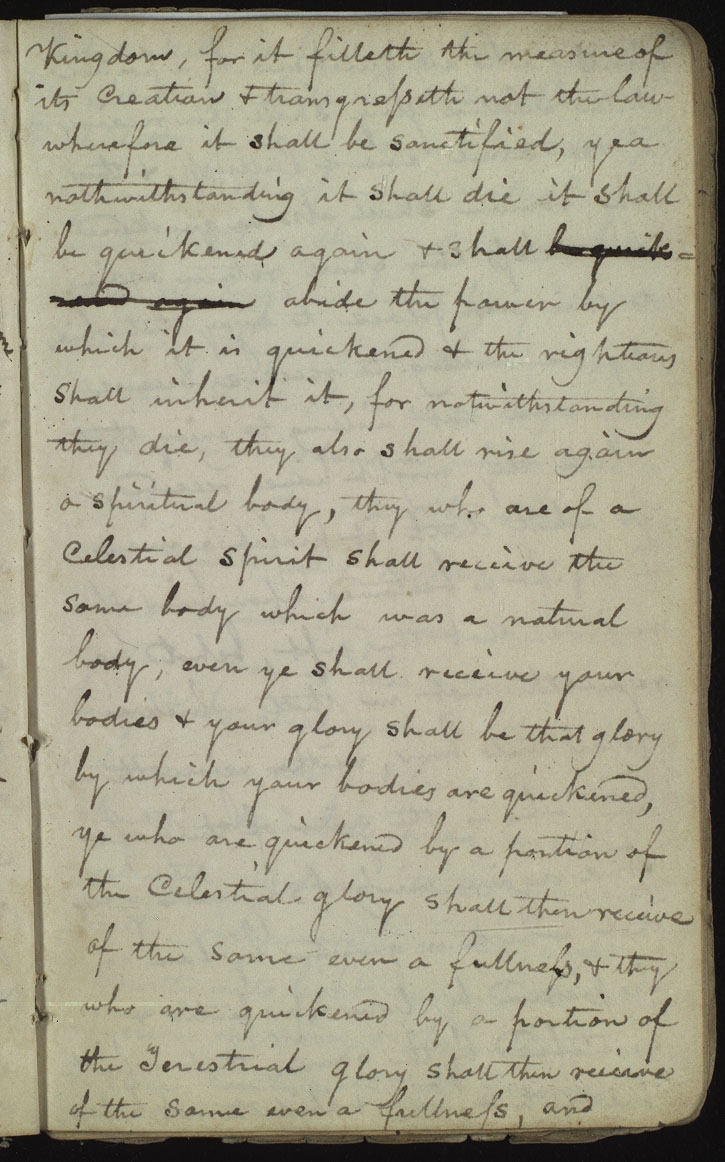 Kingdom, for it filleth the measure of
its Creation & transgresseth not the law
wherefore it shall be sanctified, yea
nothwithstanding it shall die it shall
be quickened again & shall be quick=
ened again abide the power by
which it is quickened & the rightious
shall inherit it, for notwithstanding
they die, they also shall rise again
a spiritual body, they who are of a
Celestial Spirit shall receive the
same body which was a natural
body, even ye shall receive your
bodies & your glory shall be that glory
by which your bodies are quickened,
ye who are quickened by a portion of
the Celestial glory shall then receive
of the same even a fullness, & they
who are quickened by a portion of
the Terestrial glory shall then receive
of the same even a fullness, and